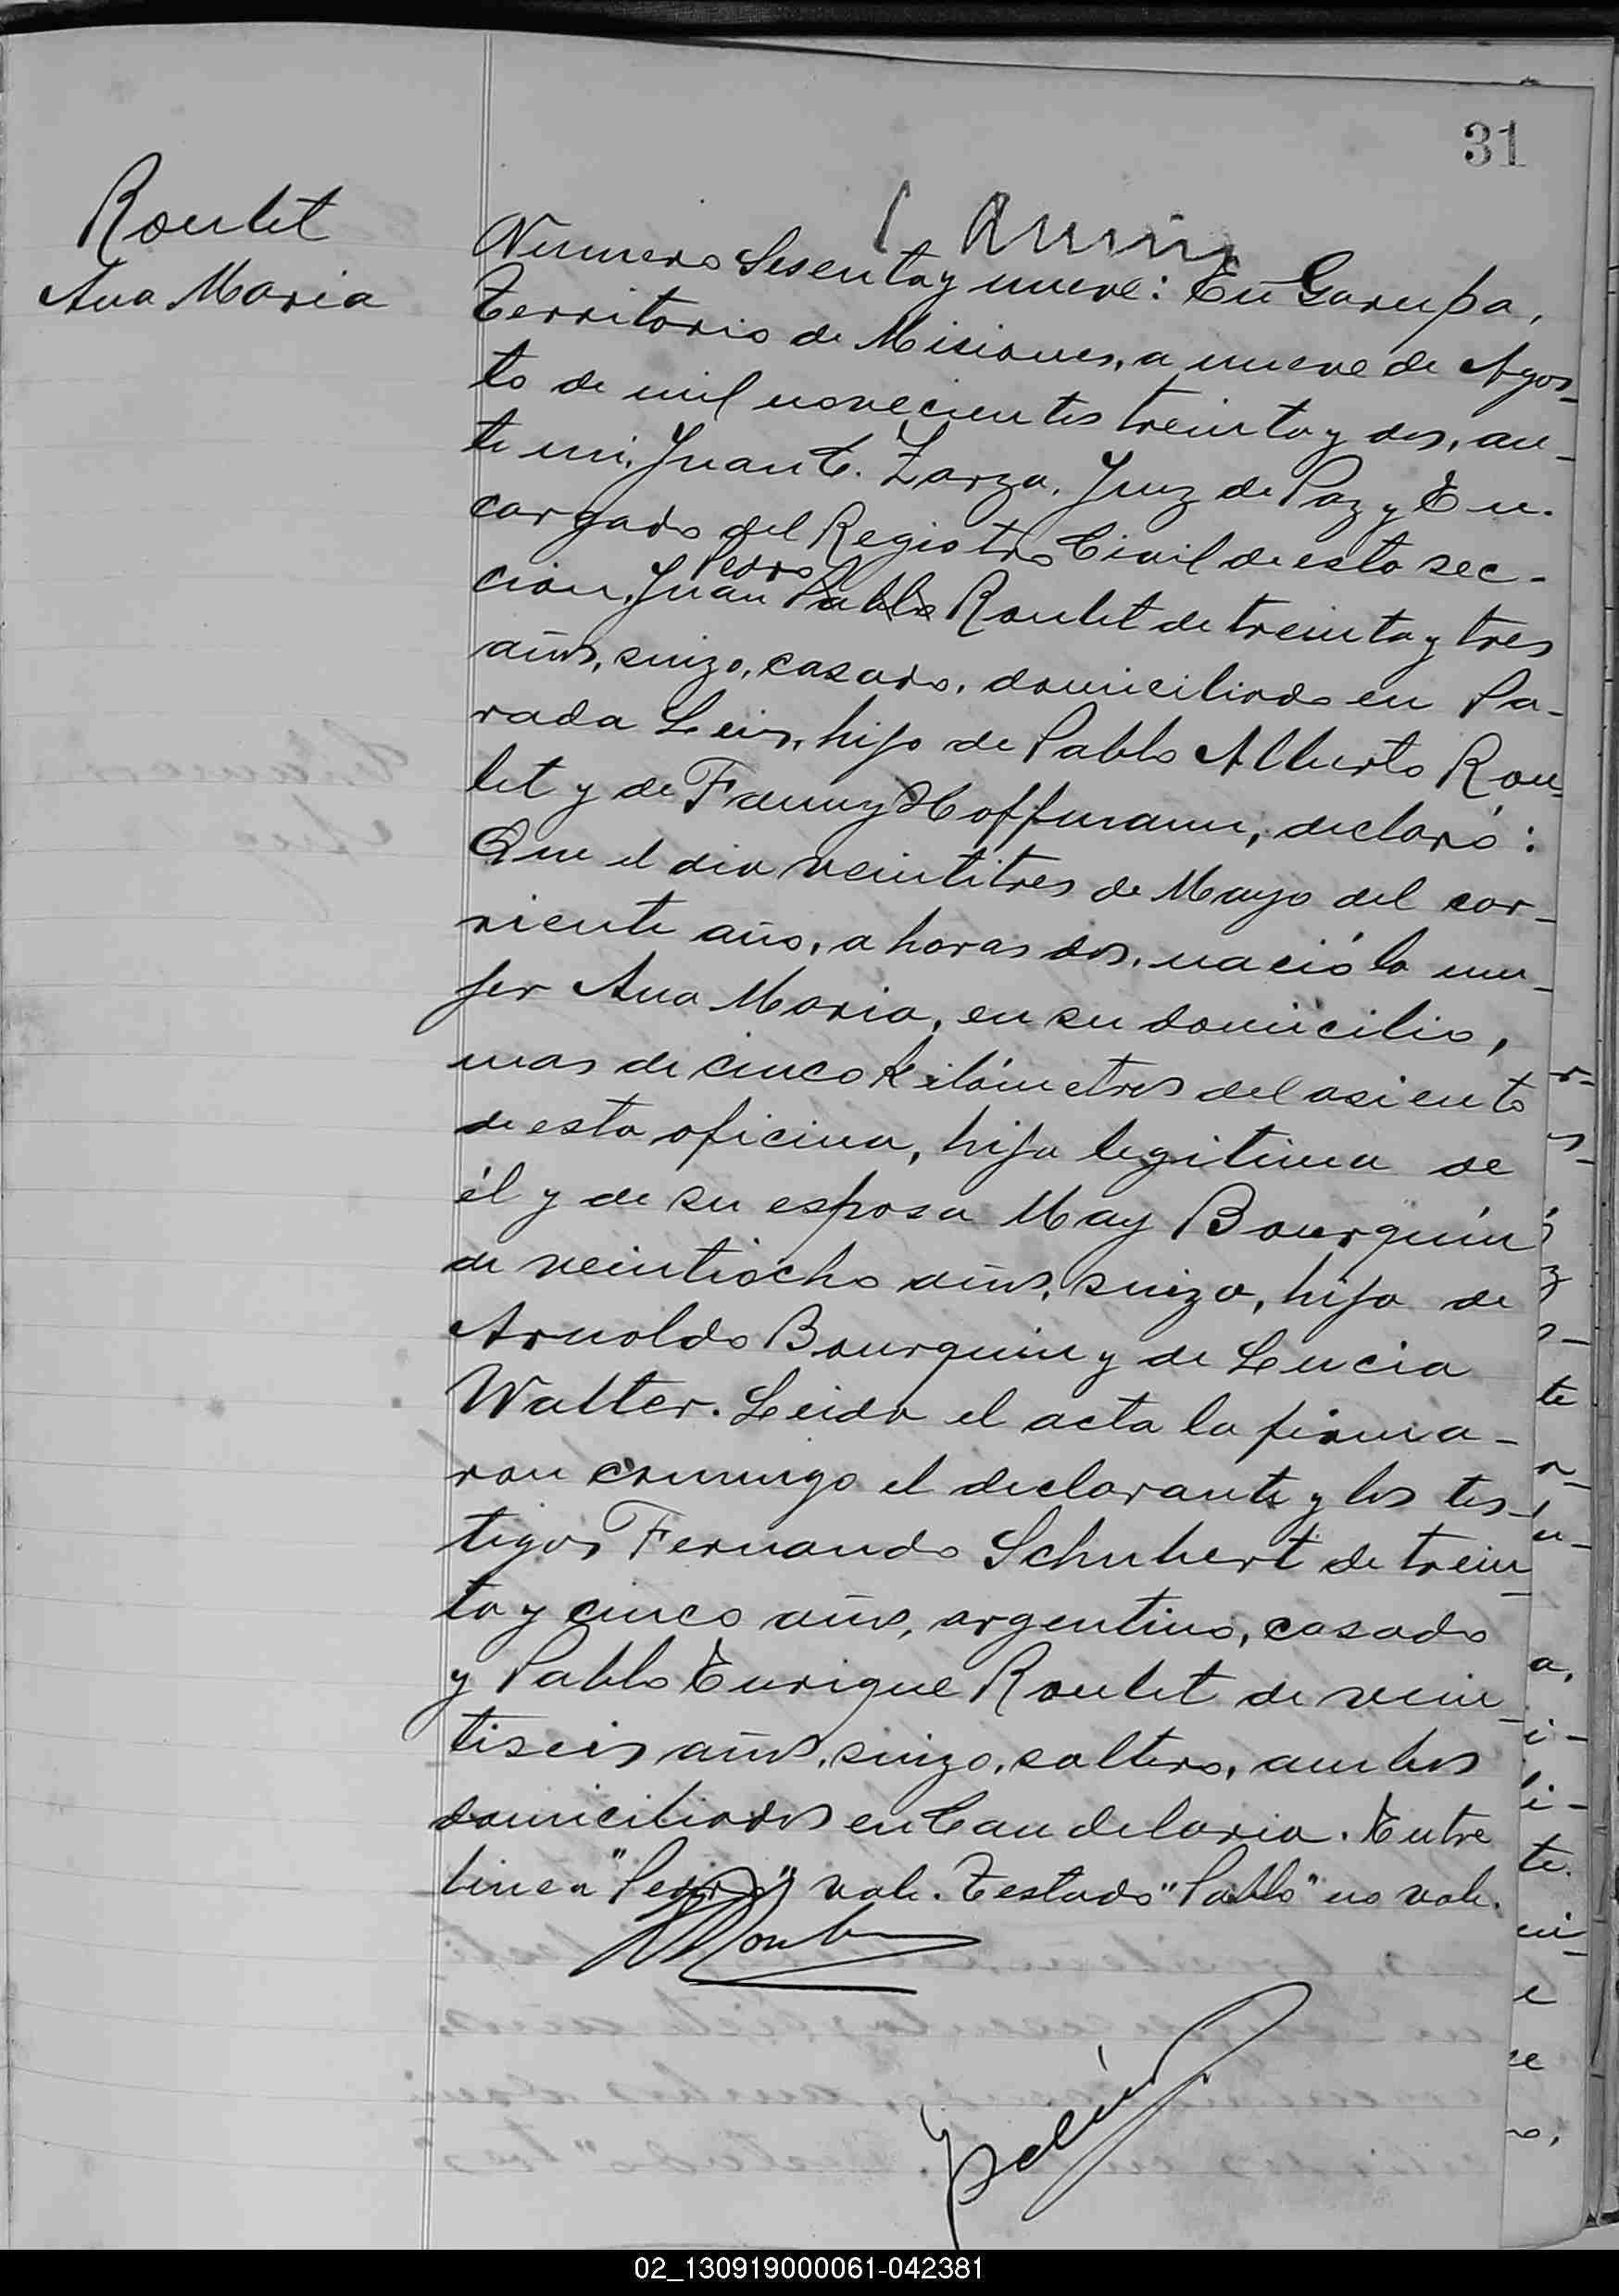 31
Roulet
Ana Maria
Numero Sesenta y nueve: En Garupa,
Territorio de Misiones, a nueve de Agos-
to de mil novecientos treinta y dos, an-
te mi, Juan C. Zarza, Juez de Paz y En-
cargado del Registro Civil de esta sec-
Pedro
cion, Juan Pablo Roulet de treinta y tres
años, suizo, casado, domiciliado en Pa-
rada Leis, hijo de Pablo Alberto Rou-
let y de Fanny Hoffmann, declaró:
Que el dia veintitres de Mayo del cor-
riente año, a horas dos, nació la mu-
jer Ana Maria, en su domicilio,
mas de cinco kilómetros del asiento
de esta oficina, hija legitima de
él y de su esposa May Bourquin
de veintiocho años, suiza, hija de
Arnoldo Bourquin y de Lucia
Walter. Leida el acta la firma-
ron conmigo el declarante y los tes-
tigos Fernando Schubert de trein-
ta y cinco años, argentino, casado
y Pablo Enrique Roulet de vein-
tiseis años, suizo, soltero, ambos
domiciliados en Candelaria. Entre
linea "Pedro" vale. Testado "Pablo" no vale.
02_130919000061-042381